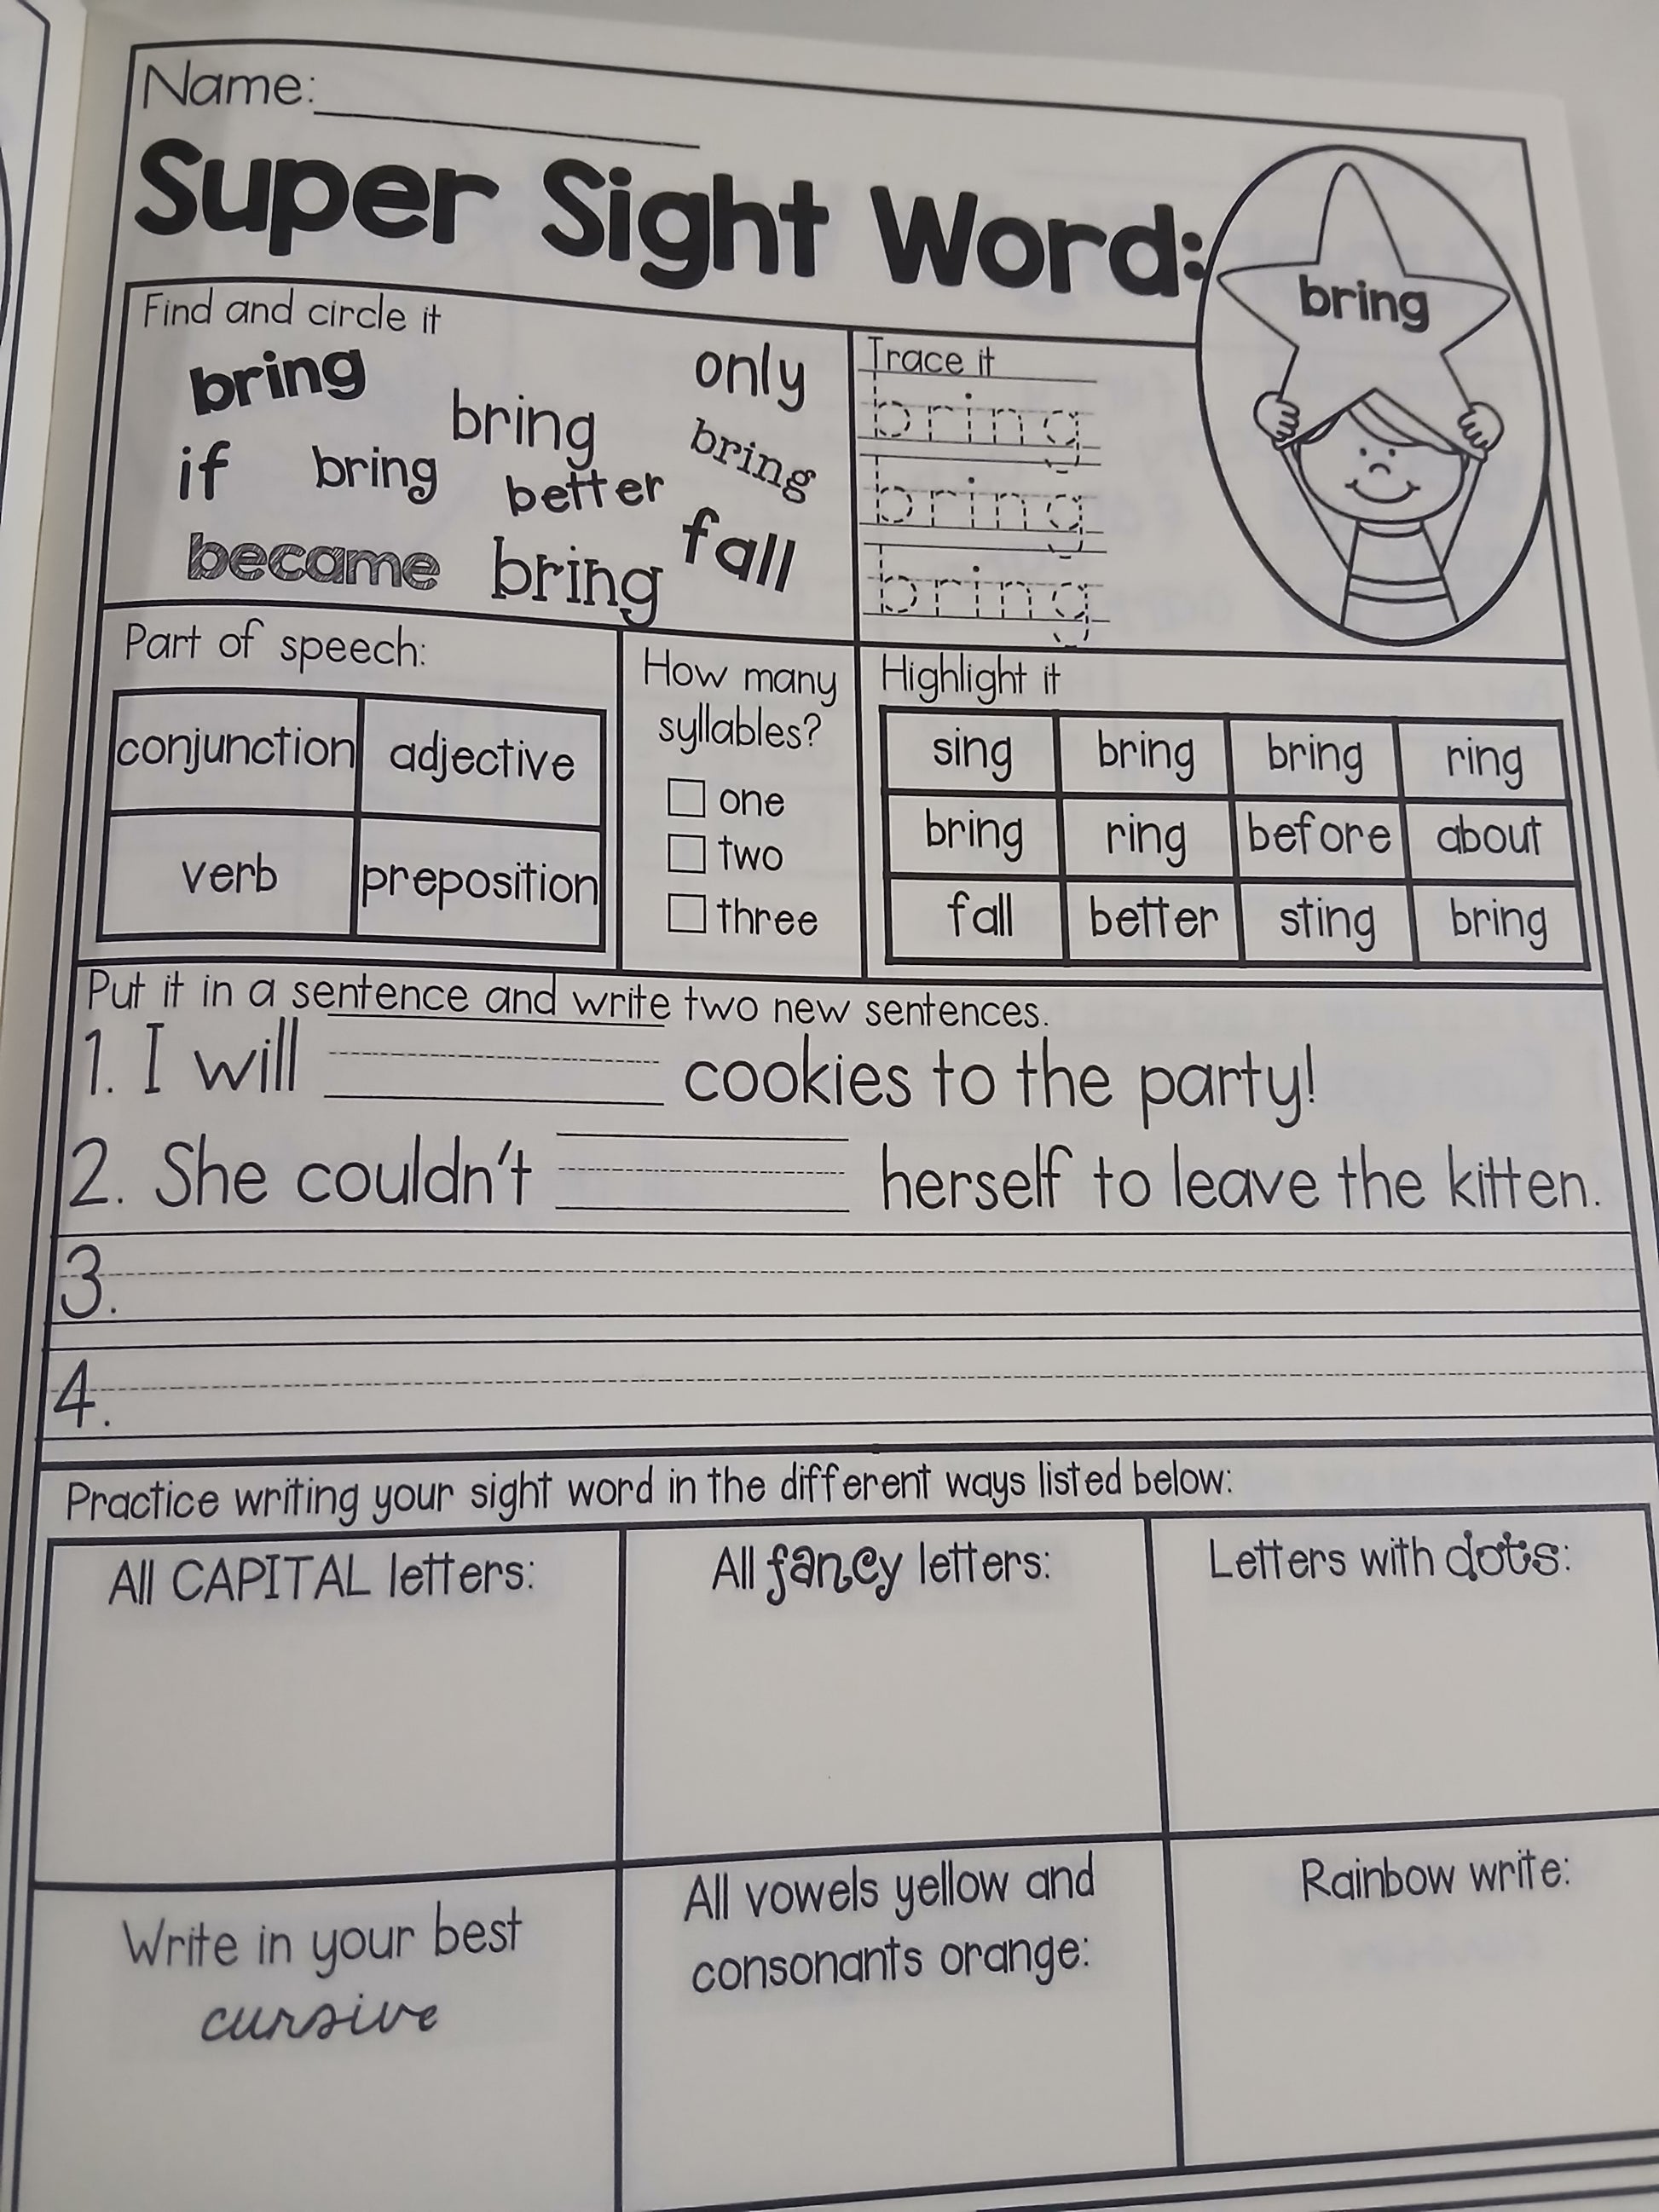 Name:
Super Sight Word:
bring
Find and circle it
bring
bring
only
if
bring
better
bring
became
bring
fall
Trace it
bring
bring
bring
Part of speech:
conjunction adjective
verb preposition
How many
syllables?
one
two
three
Highlight it
sing bring bring ring
bring ring before about
fall better sting bring
Put it in a sentence and write two new sentences.
1. I will cookies to the party!
2. She couldn't herself to leave the kitten.
3.
4.
Practice writing your sight word in the different ways listed below:
All CAPITAL letters:
All fancy letters:
Letters with dots:
Write in your best
cursive
All vowels yellow and
consonants orange:
Rainbow write: